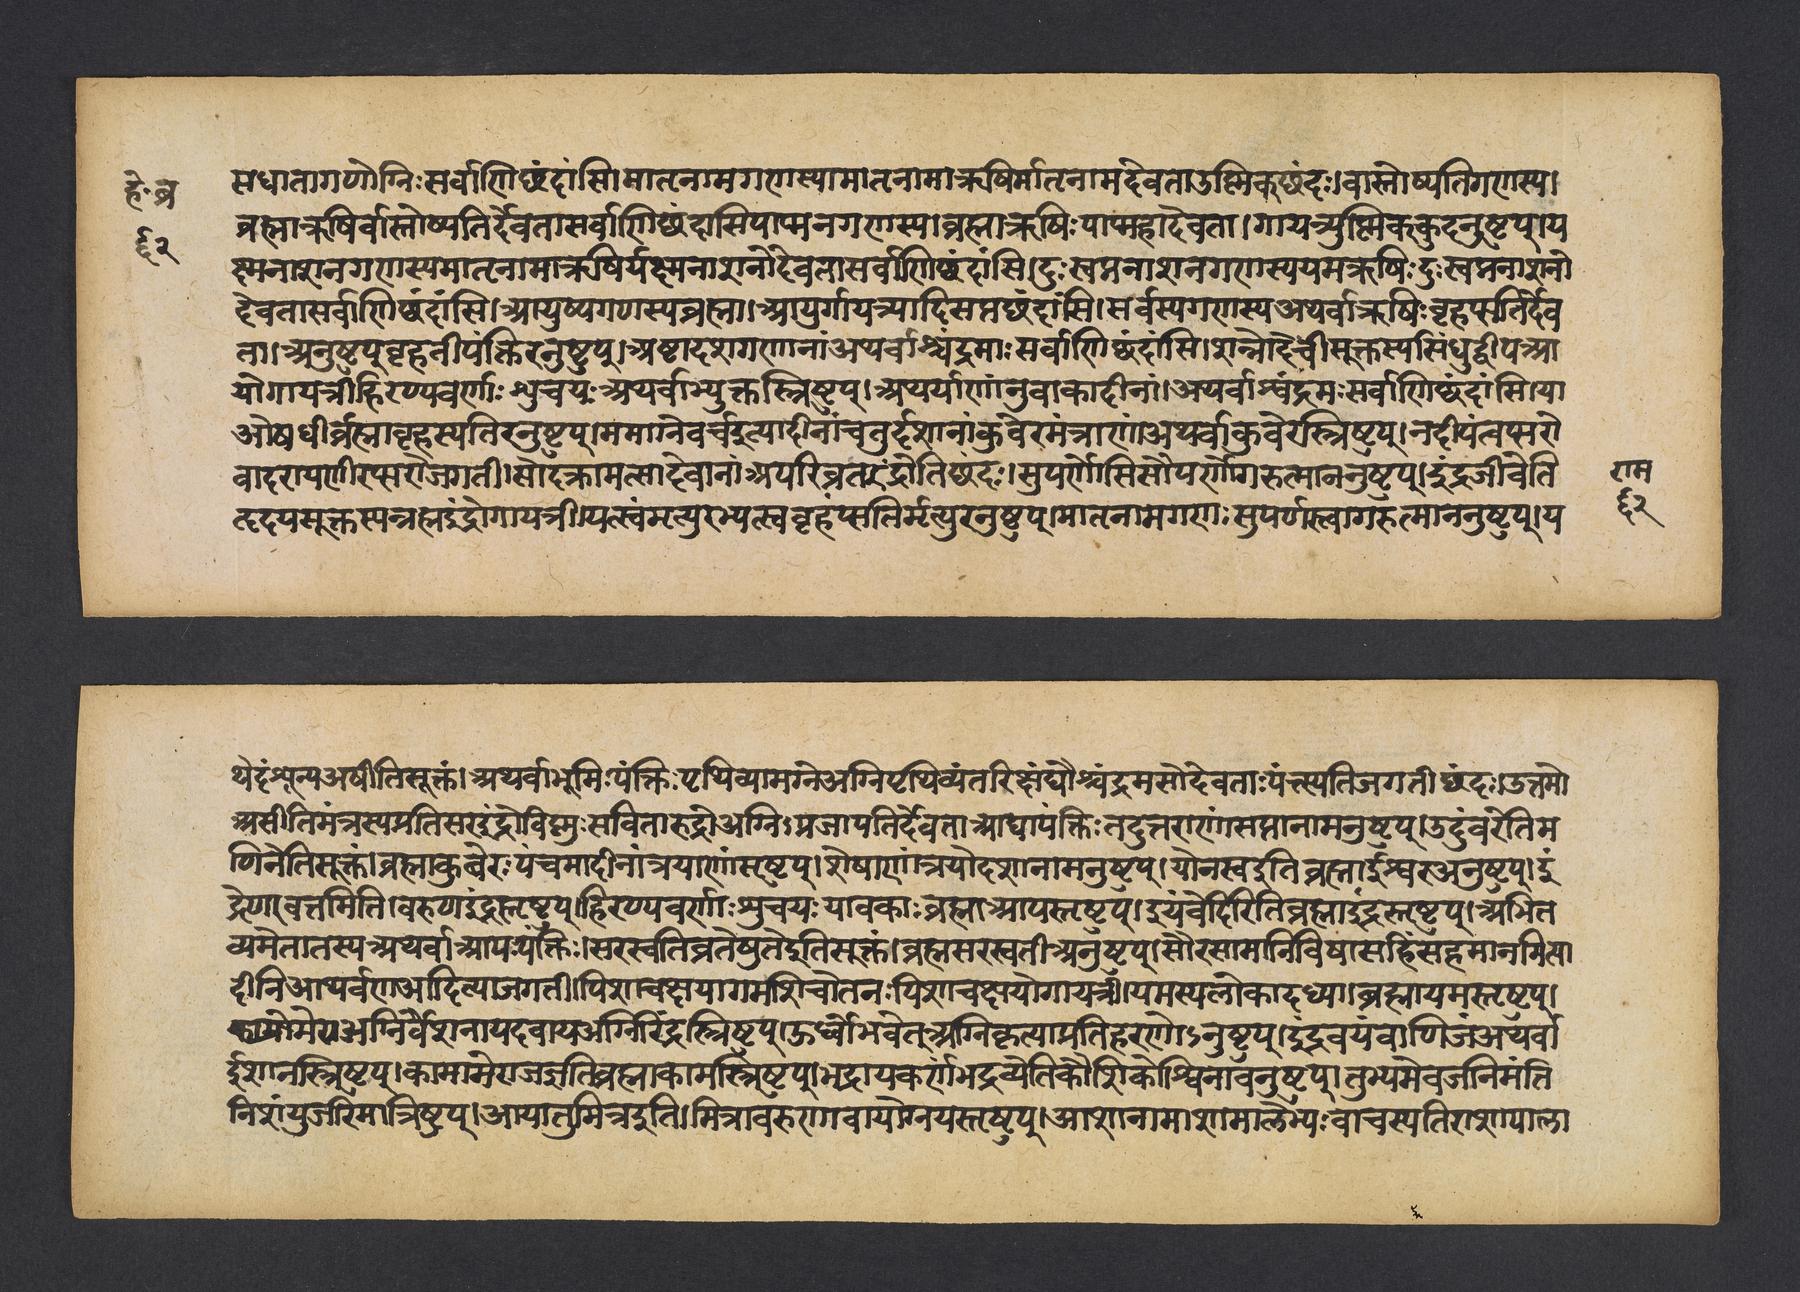 हे॰ व्र
६२
सधातागणोग्निःसर्वाणिछंदांसि।मातृनामगणस्यामातृनामाऋषिर्मातृनामदेवताउष्णिक्छंदः।वास्तोष्पतिगणस्य।
ब्रह्माऋषिर्वास्तोष्पतिर्देवतासर्वाणिछंदांसिपाप्मनगणस्य।ब्रह्माऋषिःपाप्महादेवता।गायत्र्युष्णिक्ककुदनुष्टुप्।य
क्ष्मनाशनगणस्यमातृनामाऋषिर्यक्ष्मनाशनोदेवतासर्वाणिछंदांसि।दुःस्वप्ननाशनगणस्ययमऋषिःदुःस्वप्ननाशनो
देवतासर्वाणिछंदांसि।आयुष्यगणस्यब्रह्मा।आयुर्गायत्र्यादिसप्तछंदांसि।सर्वस्यगणस्यअथर्वाऋषिःबृहस्पतिर्देव
ता।अनुष्टुप्बृहतीपंक्तिरनुष्टुप्।अष्टादशगणानांअथर्वाश्चंद्रमाःसर्वाणिछंदांसि।शन्नोदेवीसूक्तस्यसिंधुद्वीपआ
योगायत्रीहिरण्यवर्णाःशुचयःअथर्वाभ्युक्तस्त्रिष्टुप्।अथर्याणांनुवाकादीनां।अथर्वाश्चंद्रमःसर्वाणिछंदांसि।या
ओषधीर्ब्रह्माबृहस्पतिरनुष्टुप्।ममाग्नेवर्चइत्यादीनांचतुर्दशानांकुवेरमंत्राणां।अथर्वाकुवेरस्त्रिष्टुप्।नदीयंत्वप्सरो
वादरायणीरप्सरोजगती।सोदक्रामत्सादेवानांअपरिव्रतइंद्रोतिछंदः।सुपर्णोसिसौपर्णोगरुत्माननुष्टुप्।इंद्रजीवेति
हृदयसूक्तस्यब्रह्मइंद्रोगायत्री।यत्त्वंमृत्युरभ्यत्त्वबृहस्पतिर्मृत्युरनुष्टुप्।मातृनामगणःसुपर्णस्त्वागरुत्माननुष्टुप्।य
राम
६२
थेदंशून्यअषीतिसूक्तं।अथर्वाभूमिःपंक्तिःपृथिव्यामग्नेअग्निपृथिव्यंतरिक्षंद्यौश्चंद्रमसोदेवताःपंत्तस्पतिजगतीछंदः।उत्तमो
असीतिमंत्रस्यप्रतिसरइंद्रोविष्णुःसवितारुद्रोअग्निऽप्रजापतिर्देवताआद्यापंक्तिःतदुत्तराणांसप्तानामनुष्टुप्।उदुंवरेतिम
णिनेतिसूक्तं।ब्रह्माकुबेरःपंचमादीनांत्रयाणांस्तृष्टुप्।शेषाणांत्रयोदशानामनुष्टुप्।योनस्वइतिब्रह्माईश्वरअनुष्टुप्।इं
द्रेणावत्तमिति।वरुणइंद्रस्तृष्टुप्।हिरण्यवर्णाःशुचयःयावकाःब्रह्माआपस्तृष्टुप्।इयंवेदिरितिब्रह्माइंद्रस्तृष्टुप्।अभित
व्यमेतातस्यअथर्वाआपःपंक्तिः।सरस्वतिव्रतेषुतेइतिसूक्तं।ब्रह्मसरस्वतीअनुष्टुप्।सौरसामानिविषासहिंसहमानमित्या
दीनिआथर्वणाआदित्याजगती।पिशाचक्षयागमशिचोतनःपिशाचक्षयोगायत्री।यमस्यलोकादध्या।ब्रह्मायमस्तृष्टुप्।
अग्निर्वैशानायदवायअग्निरिंद्रस्त्रिष्टुप्।ऊर्ध्वोभवेतअग्निकृत्याप्रतिहरणोऽनुष्टुप्।इंद्रवयंवाणिजंअथर्वा
ईशानस्त्रिष्टुप्।कामामेराजन्नइतिब्रह्माकामस्त्रिष्टुप्।भद्रायकर्णभद्रत्येतिकौशिकोश्विनावनुष्टुप्।तुभ्यमेवजनिमंति
निशंयुजरिमात्रिष्टुप्।आयातुमित्रइति।मित्रावरुणवायोग्नयस्तृष्टुप्।आशानामाशामालेभ्यःवाचस्पतिराशापाला